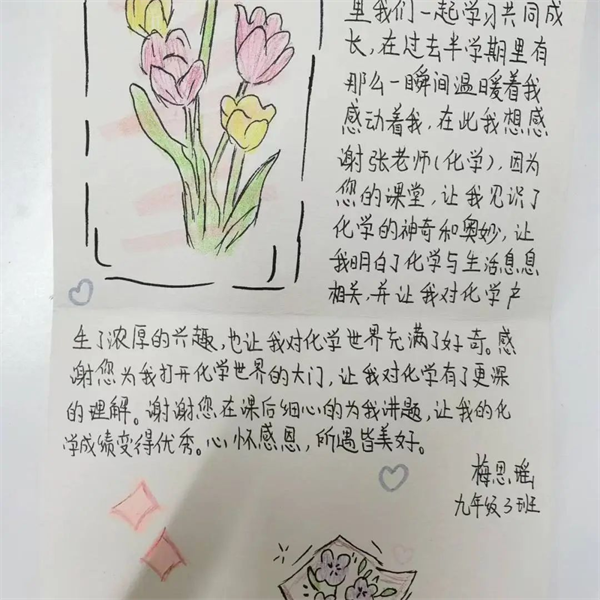 里我们一起学习共同成
长,在过去半学期里有
那么一瞬间温暖着我
感动着我,在此我想感
谢张老师(化学),因为
您的课堂,让我见识了
化学的神奇和奥妙,让
我明白了化学与生活息息
相关,并让我对化学产
生了浓厚的兴趣,也让我对化学世界充满了好奇。感
谢您为我打开化学世界的大门,让我对化学有了更深
的理解。谢谢您在课后细心的为我讲题,让我的化
学成绩变得优秀。心怀感恩,所遇皆美好。
梅思瑶
九年级3班